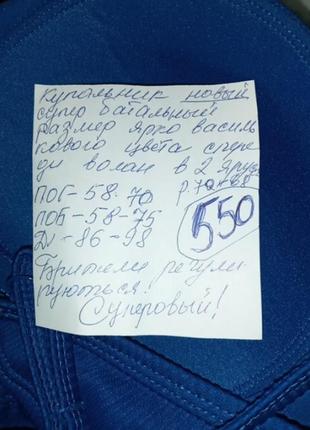 Купальник новый
супер батальный
размер ярко василь
кового цвета спере
ди волан в 2 яруса
ПОГ-58-70 р.
ПОБ-58-75 550
Дл-86-98
Бретели регули
руються!
Суперовый!